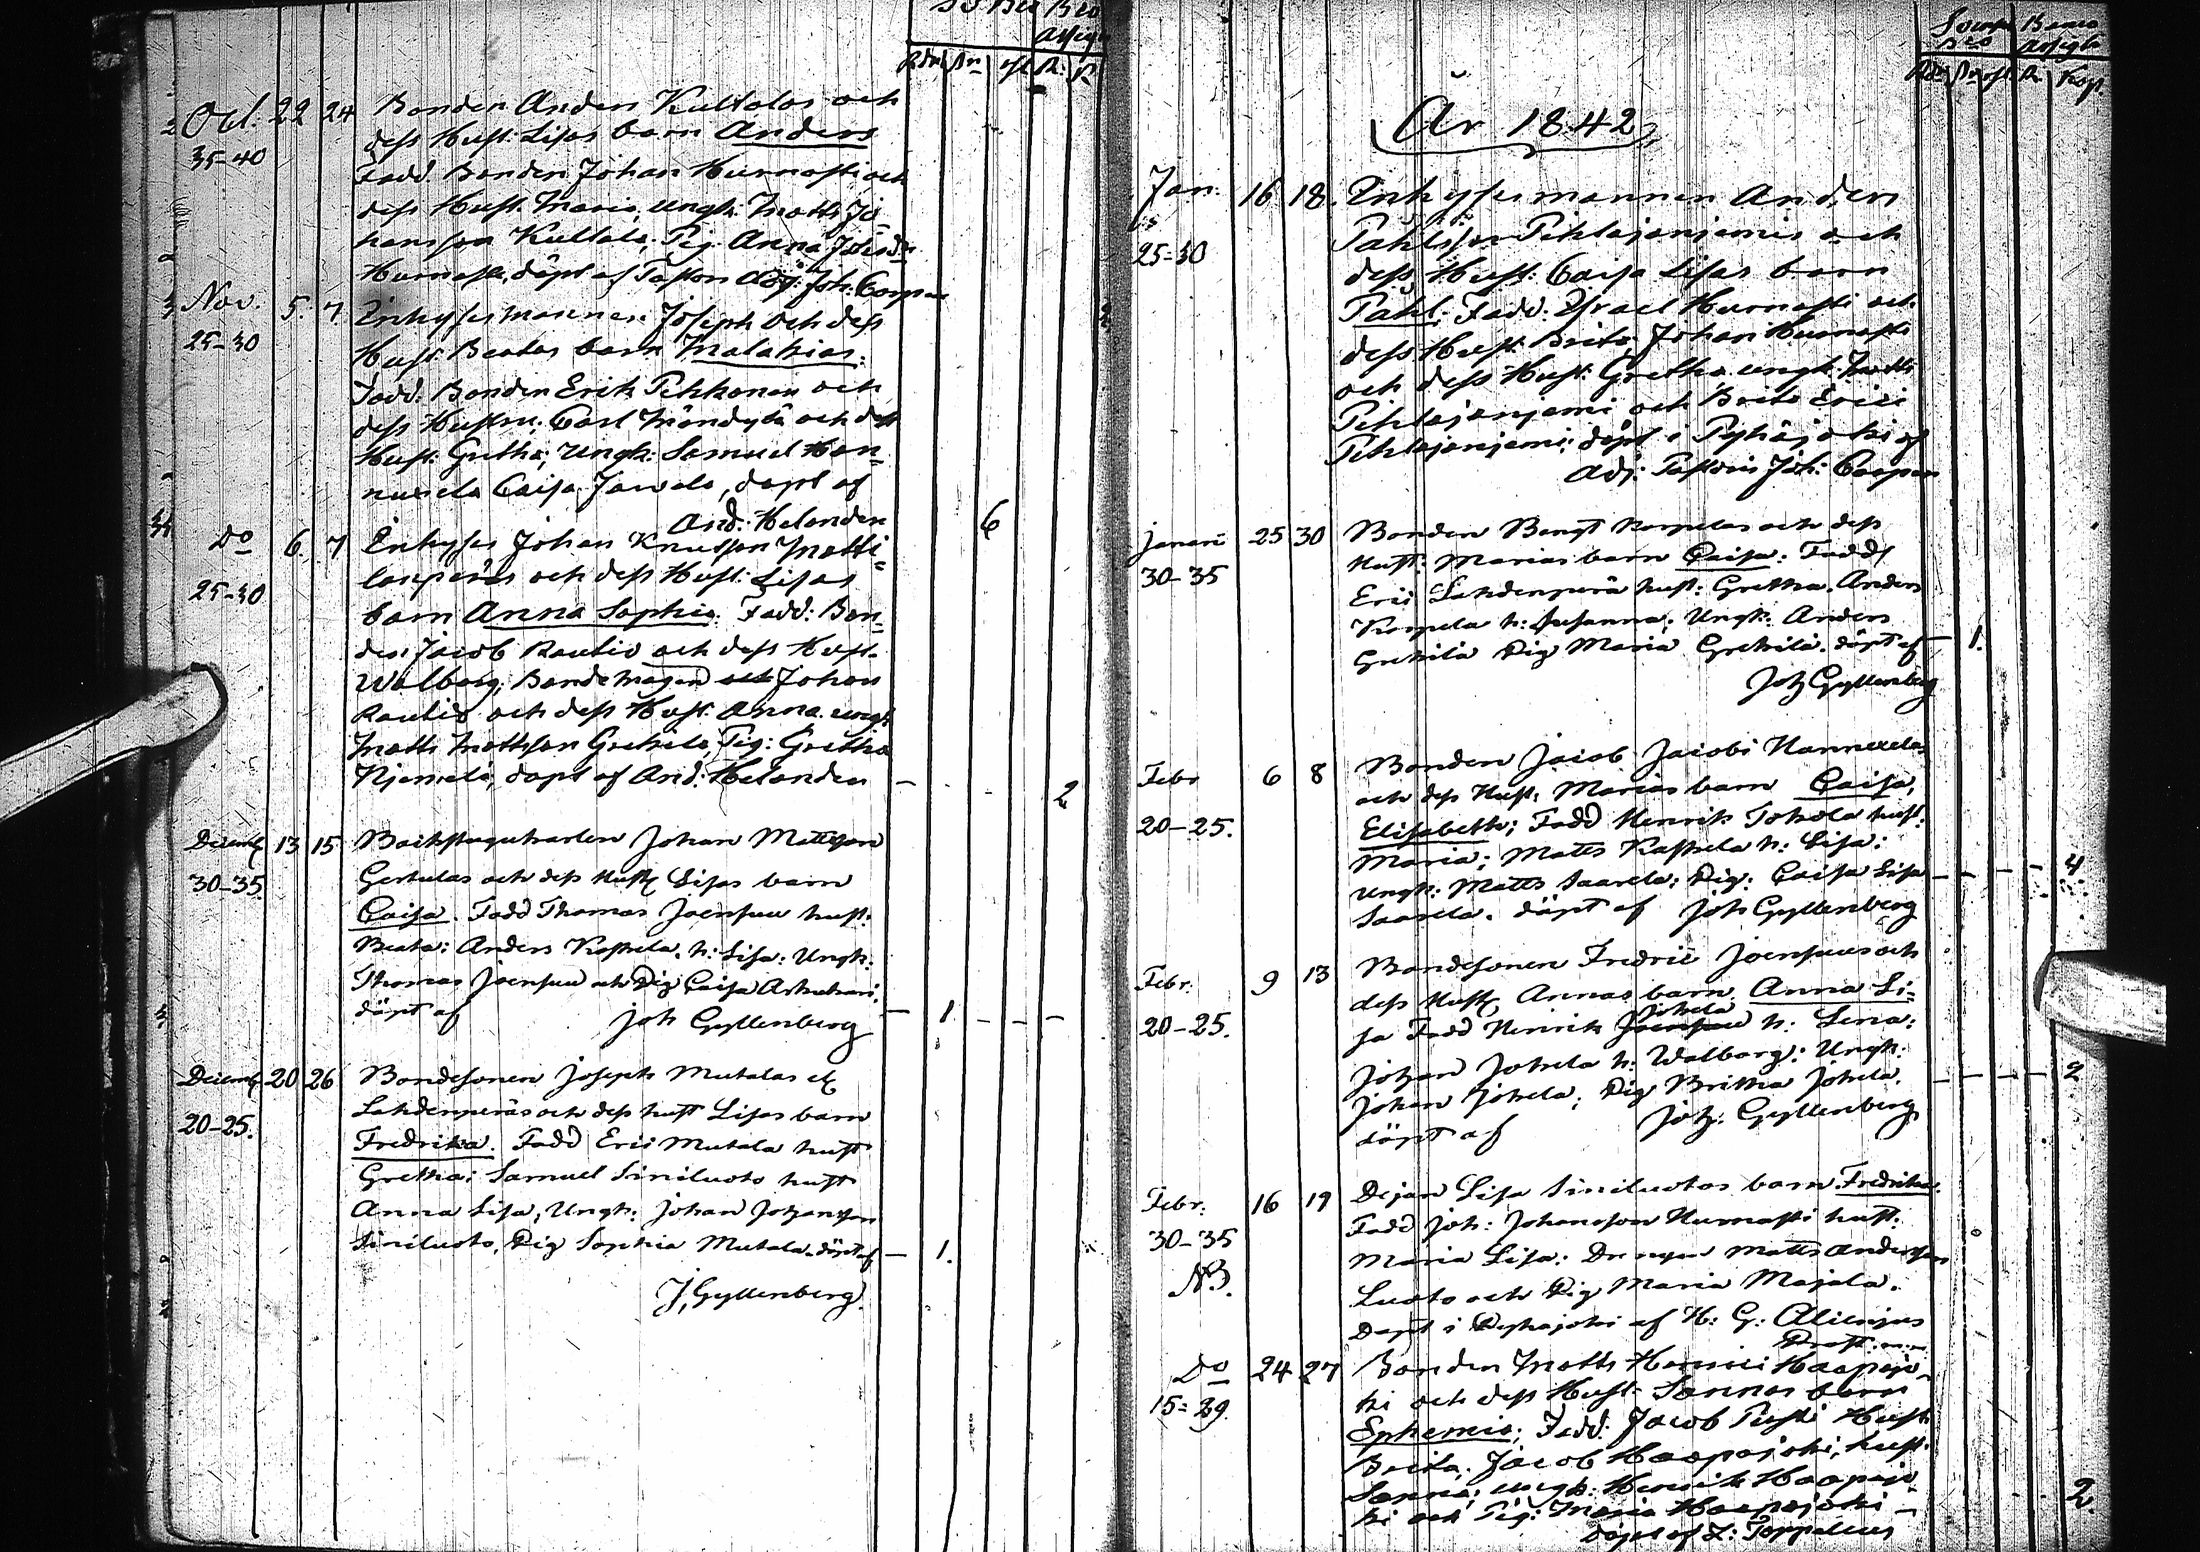 Oct. 22 24 Bonden Anders Kultalas och
35-40 dess Hust: Lisas barn Anders
Fadd. Bonden Johan Hurnasti och
dess Hust. Maria, Ungk. Matts Jo
hansson Kultala. Pig. Anna
Hurnasti, döpt af Pastors Adj: Joh: Corpan
Nov. 5. 7. Inhyses mannen Joseph och dess
25-30 Hust. Beatas barn Malakias.
Fadd. Bonden Erik Pekkonen och
dess Hustru; Carl Mändylä och dess
Hust: Gretha; Ungk: Samuel Han-
nuxela Caisa Jawala, döpt af
And. Helander 6
Do 6. 7 Inhyses Johan Knutsson Matti-
25-30 lanperäs och dess Hust: Lisas
barn Anna Sophia. Fadd: Bon-
den Jacob Rautio och dess Hust.
Walborg; Bonde Johan
Rautio och dess Hust. Anna. ungk
Matts Mattsson Grekilä, Pig: Gretha
Njemelä, döpt af And. Helander 2
Decemb 13 15 Backstuguhariten Johan Mattsson
30-35 och dess Hust Lisas barn
Caisa. Fadd Thomas Joensuu hust:
Beata: Anders Kastrela. h: Lisa: Ungk:
Thomas Joensuu och Pig Caisa
döpt af Joh Gyllenberg 1
Decemb 20 26 Bondesonen Joseph Mutalas
20-25. Lahdenperäs och dess hust Lisas barn
Fredrika. Fadd Eric Mutala hust
Gretha: Samuel Siniluoto hust
Anna Lisa, Ungk: Johan Johansson
Siniluoto, Pig Sophia Mutala. döpt af 1.
J. Gyllenberg.
År 1842
Jan. 16 18. Inhyses mannen Anders
Påhlsson Pihlajanjemis och
25-30 dess Hust: Caisa Lisas barn
Påhl; Fadd: Israel Hurnasti och
dess Hust. Brita Johan Hurnasti
och dess Hust: Gretha ungk. Matti
Pihlajanjemi och Brita Erici
Pihlajanjemi; döpt i Pyhäjoki af
Adj: Pastoris Joh: Corpan
Januari 25 30 Bonden Bengt Korpelas och dess
30-35 Hust: Marias barn Caisa: Fadd
Eric Lahdenperä hust: Gretha. Anders
Korpela h: Susanna; Ungk: Anders
Grekilä Pig Maria Grekilä. döpt af 1.
Joh Gyllenberg
Febr 6 8 Bonden Jacob Jacobi Hannuxelas
och dess Hust: Marias barn Caisa,
20-25. Elisabeth; Fadd Henrik Tokola hust:
Maria; Matts Kastrela h: Lisa;
Ungk: Matts Saarela; Pig: Caisa Lisa 4.
Saarela. döpt af Joh Gyllenberg
Febr. 9 13 Bondesonen Fredric Joensuus och
dess Hust Annas barn Anna Li-
20-25. sa Fadd Henrik Jokela h: Lena:
Johan Jokela h: Walborg: Ungk:
Johan Jokela; Pig Britha Jokela. 2
döpt af Joh: Gyllenberg
Febr. 16 19 Dejan Lisa Siniluotos barn Fredrika.
Fadd Joh: Johansson Hurnasti hust:
30-35 Maria Lisa: Drengen Matts Andersson
NB. Luoto och Pig Maria Majala.
Döpt i Pyhäjoki af H: G: Alcenius
Prost
Do 24 27 Bonden Matts Henrici Haapajo-
15-29. ki och dess Hust Sannas barn
Ephemia; Fadd: Jacob Pirsti Hust
Brita; Jacob Haapajoki, hust.
Sanna; ungk: Henrik Haapajo-
ki och Pig: Maria Haapajoki 2.
döpt af L: Toppelius